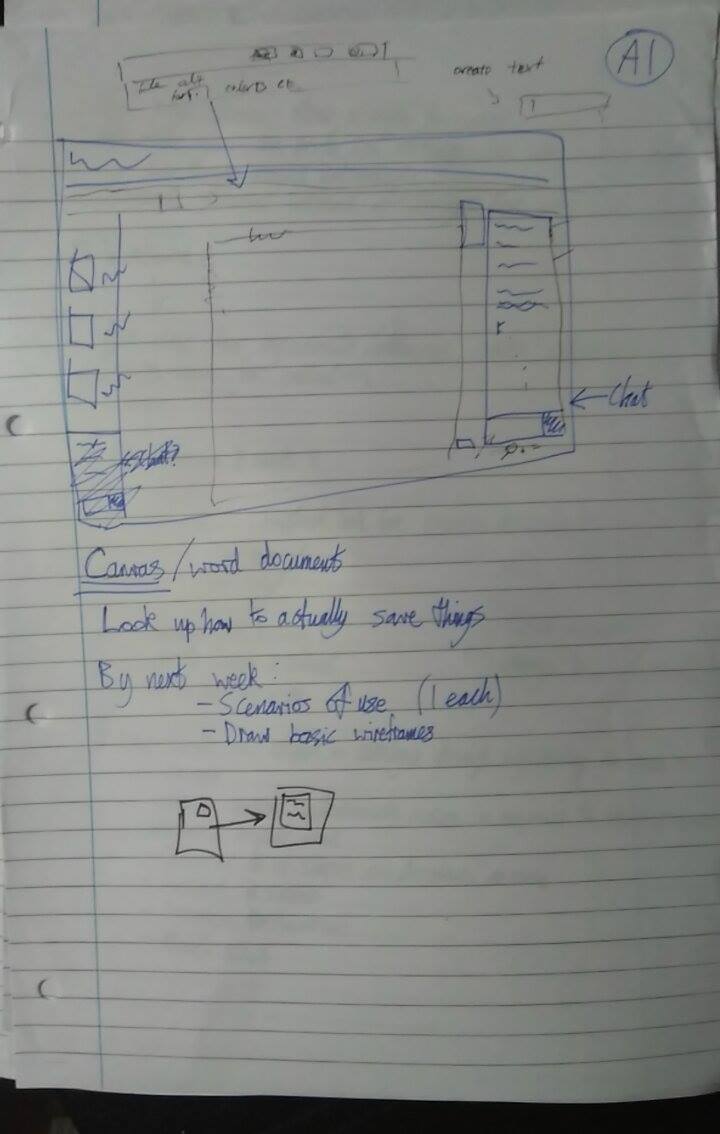 A1
create text
colors etc
Chat
Canvas / word document
Look up how to actually save things
By next week:
- Scenarios of use (1 each)
- Draw basic wireframes